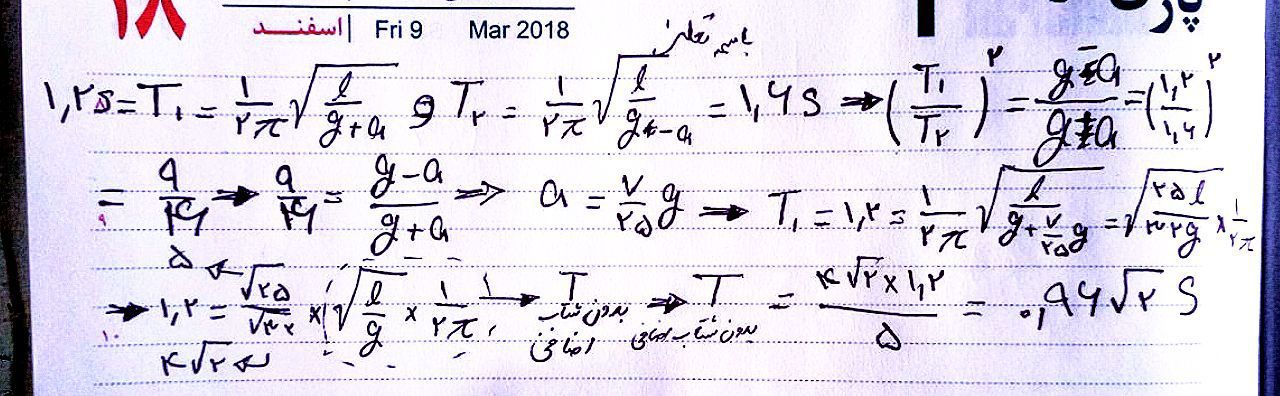 ۱۸ اسفند | Fri 9 Mar 2018
باسمه تعالی
۱,۲s = T۱ = ۱/۲π √(l/(g+a)) و T۲ = ۱/۲π √(l/(g-a)) = ۱,۶s ⇒ (T۱/T۲)^۲ = (g-a)/(g+a) = (۱,۲/۱,۶)^۲
= ۹/۱۶ → ۹/۱۶ = (g-a)/(g+a) ⇒ a = ۷/۲۵ g ⇒ T۱ = ۱,۲ = ۱/۲π √(l/(g+۷/۲۵ g)) = √(۲۵l/۳۲g) × ۱/۲π
۹
⇒ ۱,۲ = √۲۵/√۳۲ × √(l/g) × ۱/۲π → T بدون شتاب اضافی ⇒ T بدون شتاب اضافی = ۴√۲×۱,۲/۵ = ۰,۹۶√۲ s
۵
۴√۲
۱۰